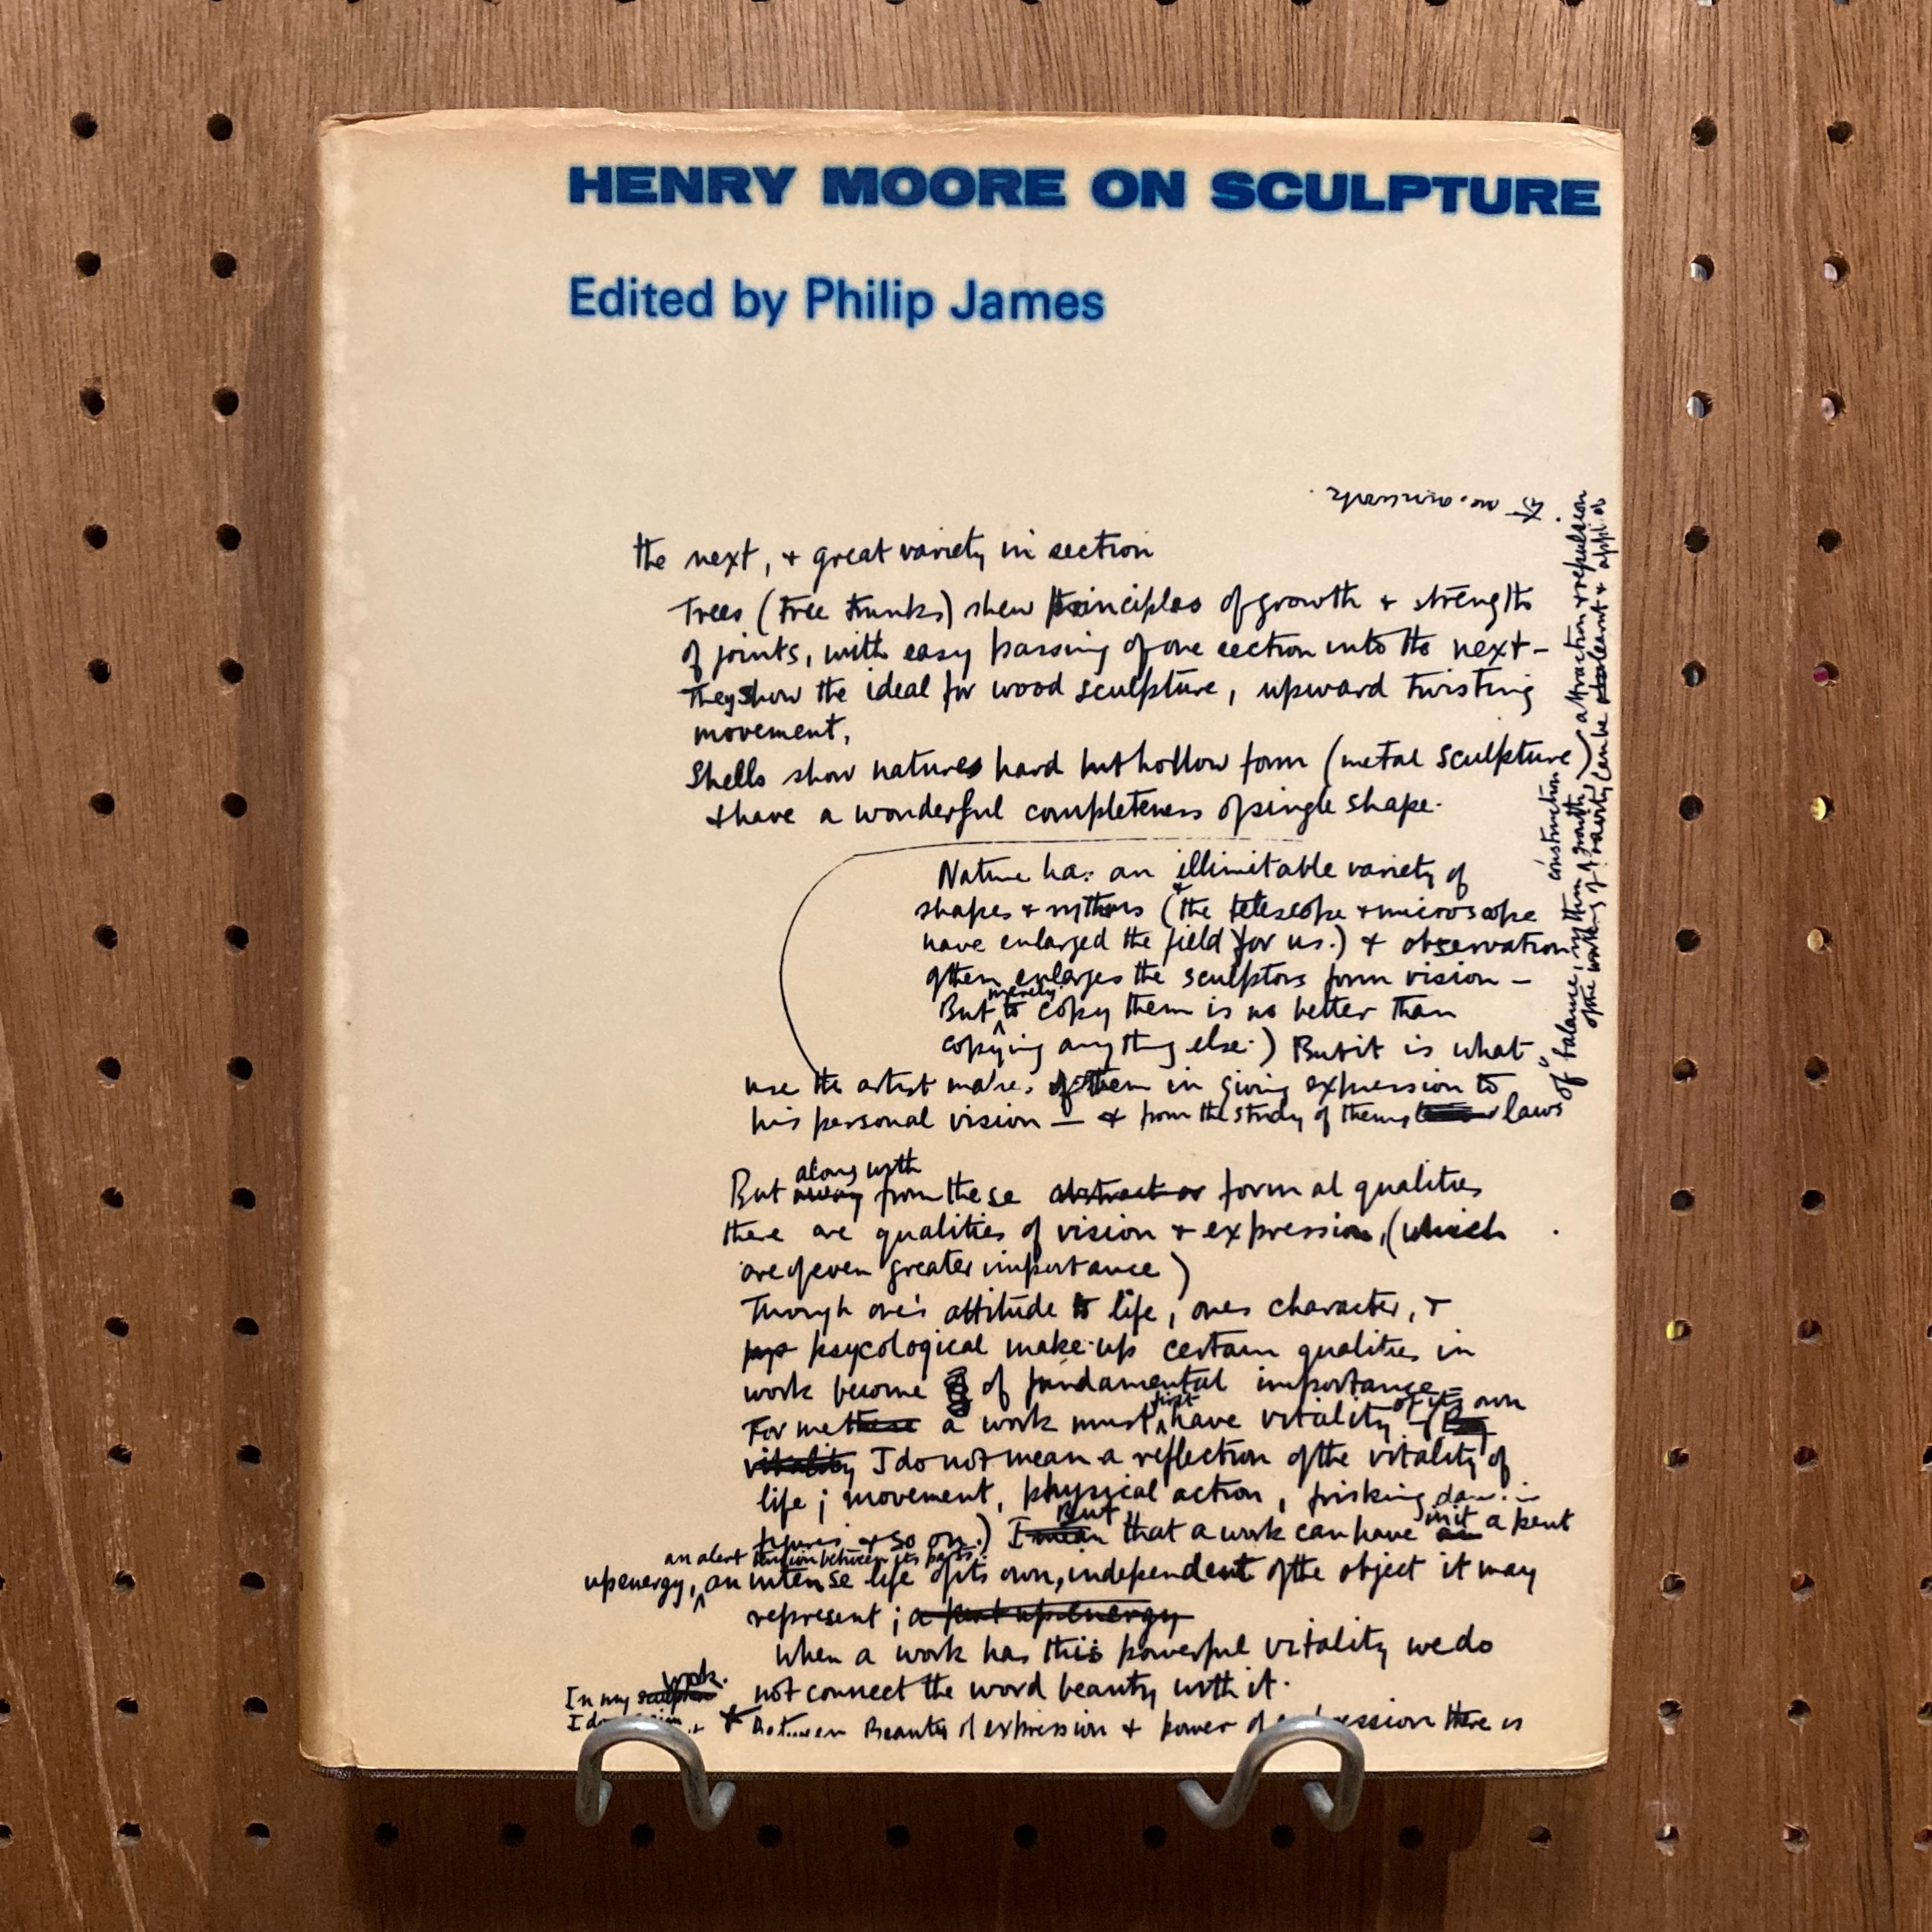 HENRY MOORE ON SCULPTURE
Edited by Philip James
the next, + great variety in section
Trees (tree trunks) shew principles of growth + strength
of joints, with easy passing of one section into the next –
They show the ideal for wood sculpture, upward twisting
movement,
Shells show natures hard but hollow form (metal sculpture)
+ have a wonderful completeness of single shape.
Nature has an illimitable variety of
shapes + rythms (the telescope + microscope
have enlarged the field for us.) + observation
of them enlarges the sculptors form vision –
But merely to copy them is no better than
copying anything else.) But it is what
use the artist makes of them in giving expression to
his personal vision — + from the study of them laws
of balance, rythm, construction
growth, attraction + repulsion
can be learnt +
But along with these abstract or formal qualities
there are qualities of vision + expression, (which
are of even greater importance)
Through one's attitude to life, ones character, +
psycological make-up certain qualities in
work become of fundamental importance –
For me these a work must first have vitality of its own
vitality I do not mean a reflection of the vitality of
life; movement, physical action, frisking
figures + so on.) But I mean that a work can have in it a pent
an alert tension between its parts
up energy, an intense life of its own, independent of the object it may
represent; a pent up energy
When a work has this powerful vitality we do
not connect the word beauty with it.
In my work
Between Beauty of expression + power of expression there is